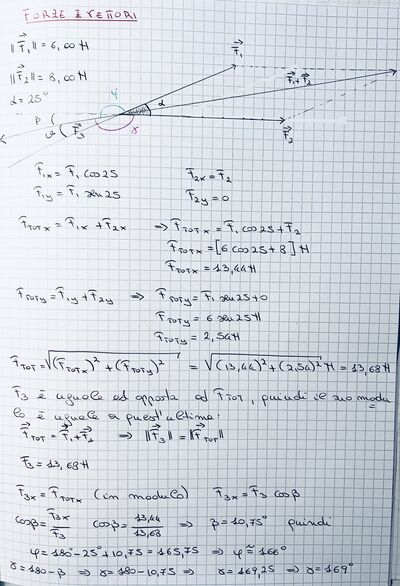 FORZE E VETTORI
||F⃗₁|| = 6,00 N
||F⃗₂|| = 8,00 N
α = 25°
F⃗₁
F⃗₁+F⃗₂
F⃗₂
F⃗₃
φ
α
β
γ
F₁x = F₁ cos25
F₂x = F₂
F₁y = F₁ sen25
F₂y = 0
F TOT x = F₁x + F₂x ⇒ F TOT x = F₁ cos25 + F₂
F TOT x = [6 cos25 + 8] N
F TOT x = 13,44 N
F TOT y = F₁y + F₂y ⇒ F TOT y = F₁ sen25 + 0
F TOT y = 6 sen25 N
F TOT y = 2,54 N
F TOT = √(F TOT x)² + (F TOT y)² = √(13,44)² + (2,54)² N = 13,68 N
F₃ è uguale ed opposta ad F TOT, quindi il suo modu
lo è uguale a quest'ultima:
F⃗ TOT = F⃗₁ + F⃗₂ ⇒ ||F⃗₃|| = ||F⃗ TOT||
F₃ = 13,68 N
F₃x = F TOT x (in modulo) F₃x = F₃ cosβ
cosβ = F₃x/F₃ cosβ = 13,44/13,68 ⇒ β = 10,75° quindi
φ = 180° - 25° + 10,75 = 165,75 ⇒ φ ≅ 166°
γ = 180 - β ⇒ γ = 180 - 10,75 ⇒ γ = 169,25 ⇒ γ = 169°